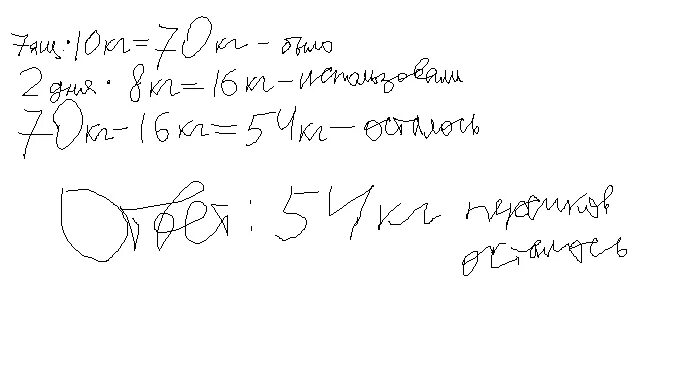 7ящ·10кг=70кг-было
2 дня· 8кг=16кг-использовали
70кг-16кг=54кг-осталось
Ответ: 54кг персиков
осталось